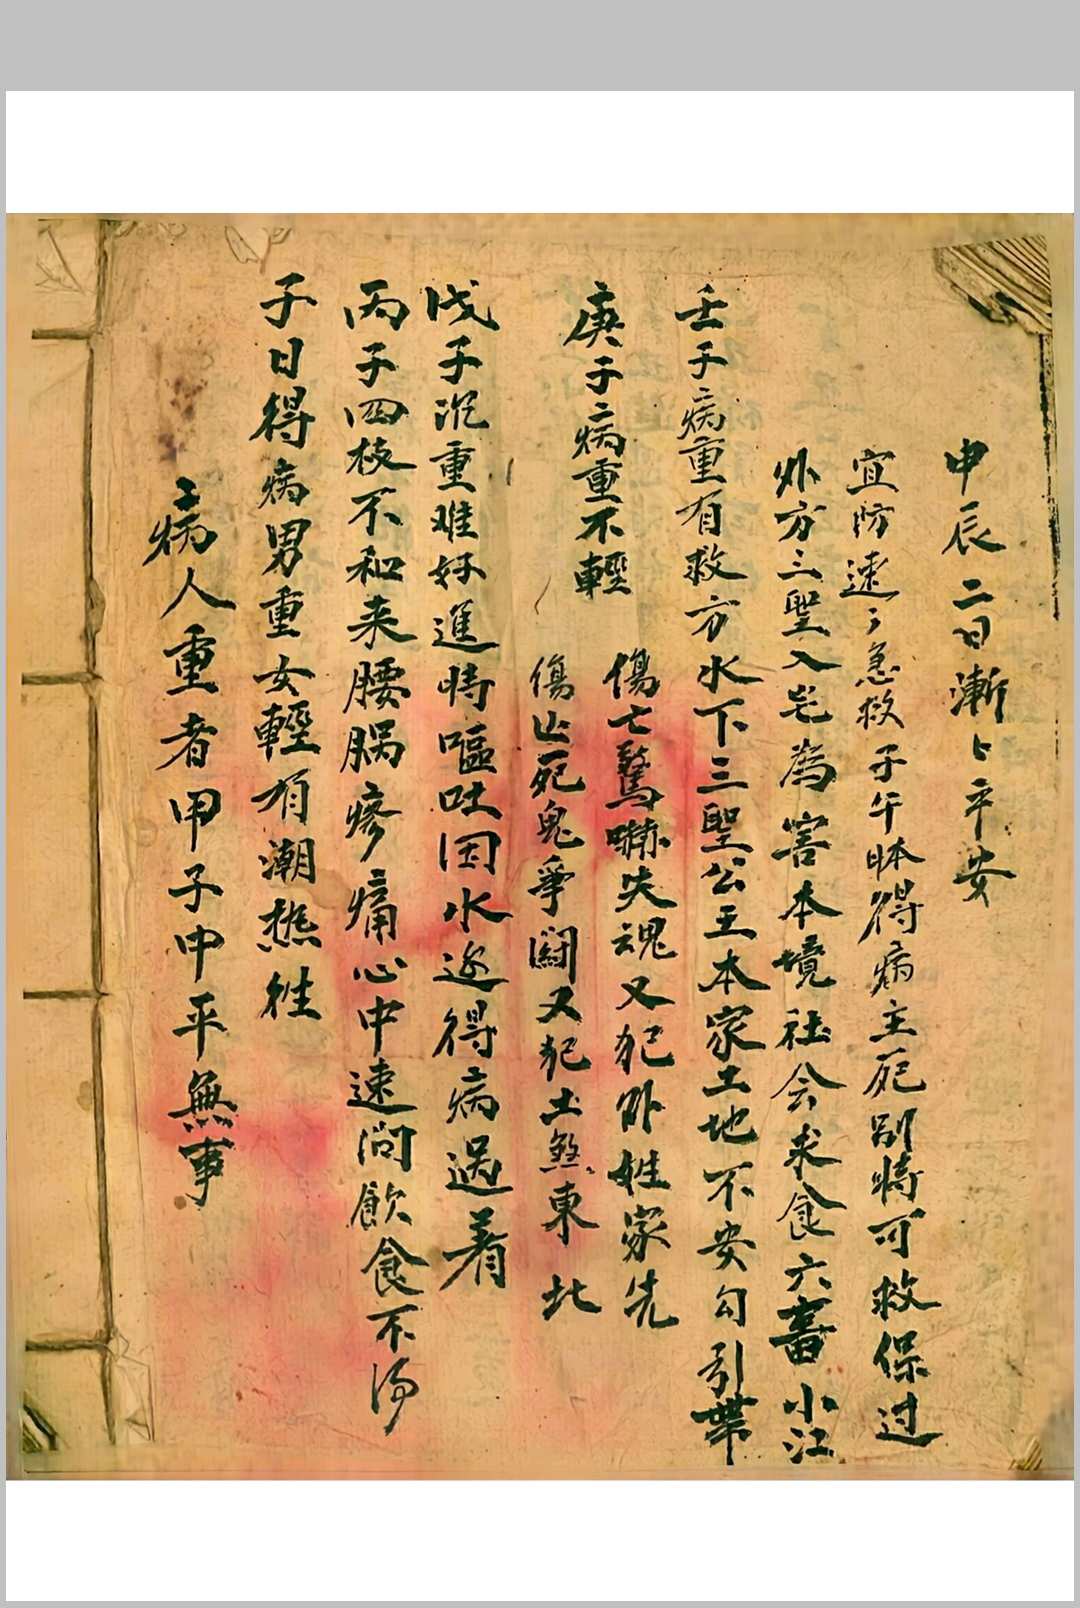 申辰二日漸卜平安
宜防速々急救子午時得病主死別時可救保过
外方三聖入宅為害本境社会求食六畜小江
壬子病重有救方水下三聖公王本家土地不安勾引
庚子病重不輕
傷亡驚嚇失魂又犯外姓家先
傷亡死鬼爭鬪又犯土煞東北
戊子沉重难好進時嘔吐国水逐得病過着
丙子四枝不和来腰腸疼痛心中速悶飲食不
子日得病男重女輕有潮熱往
病人重者甲子中平無事